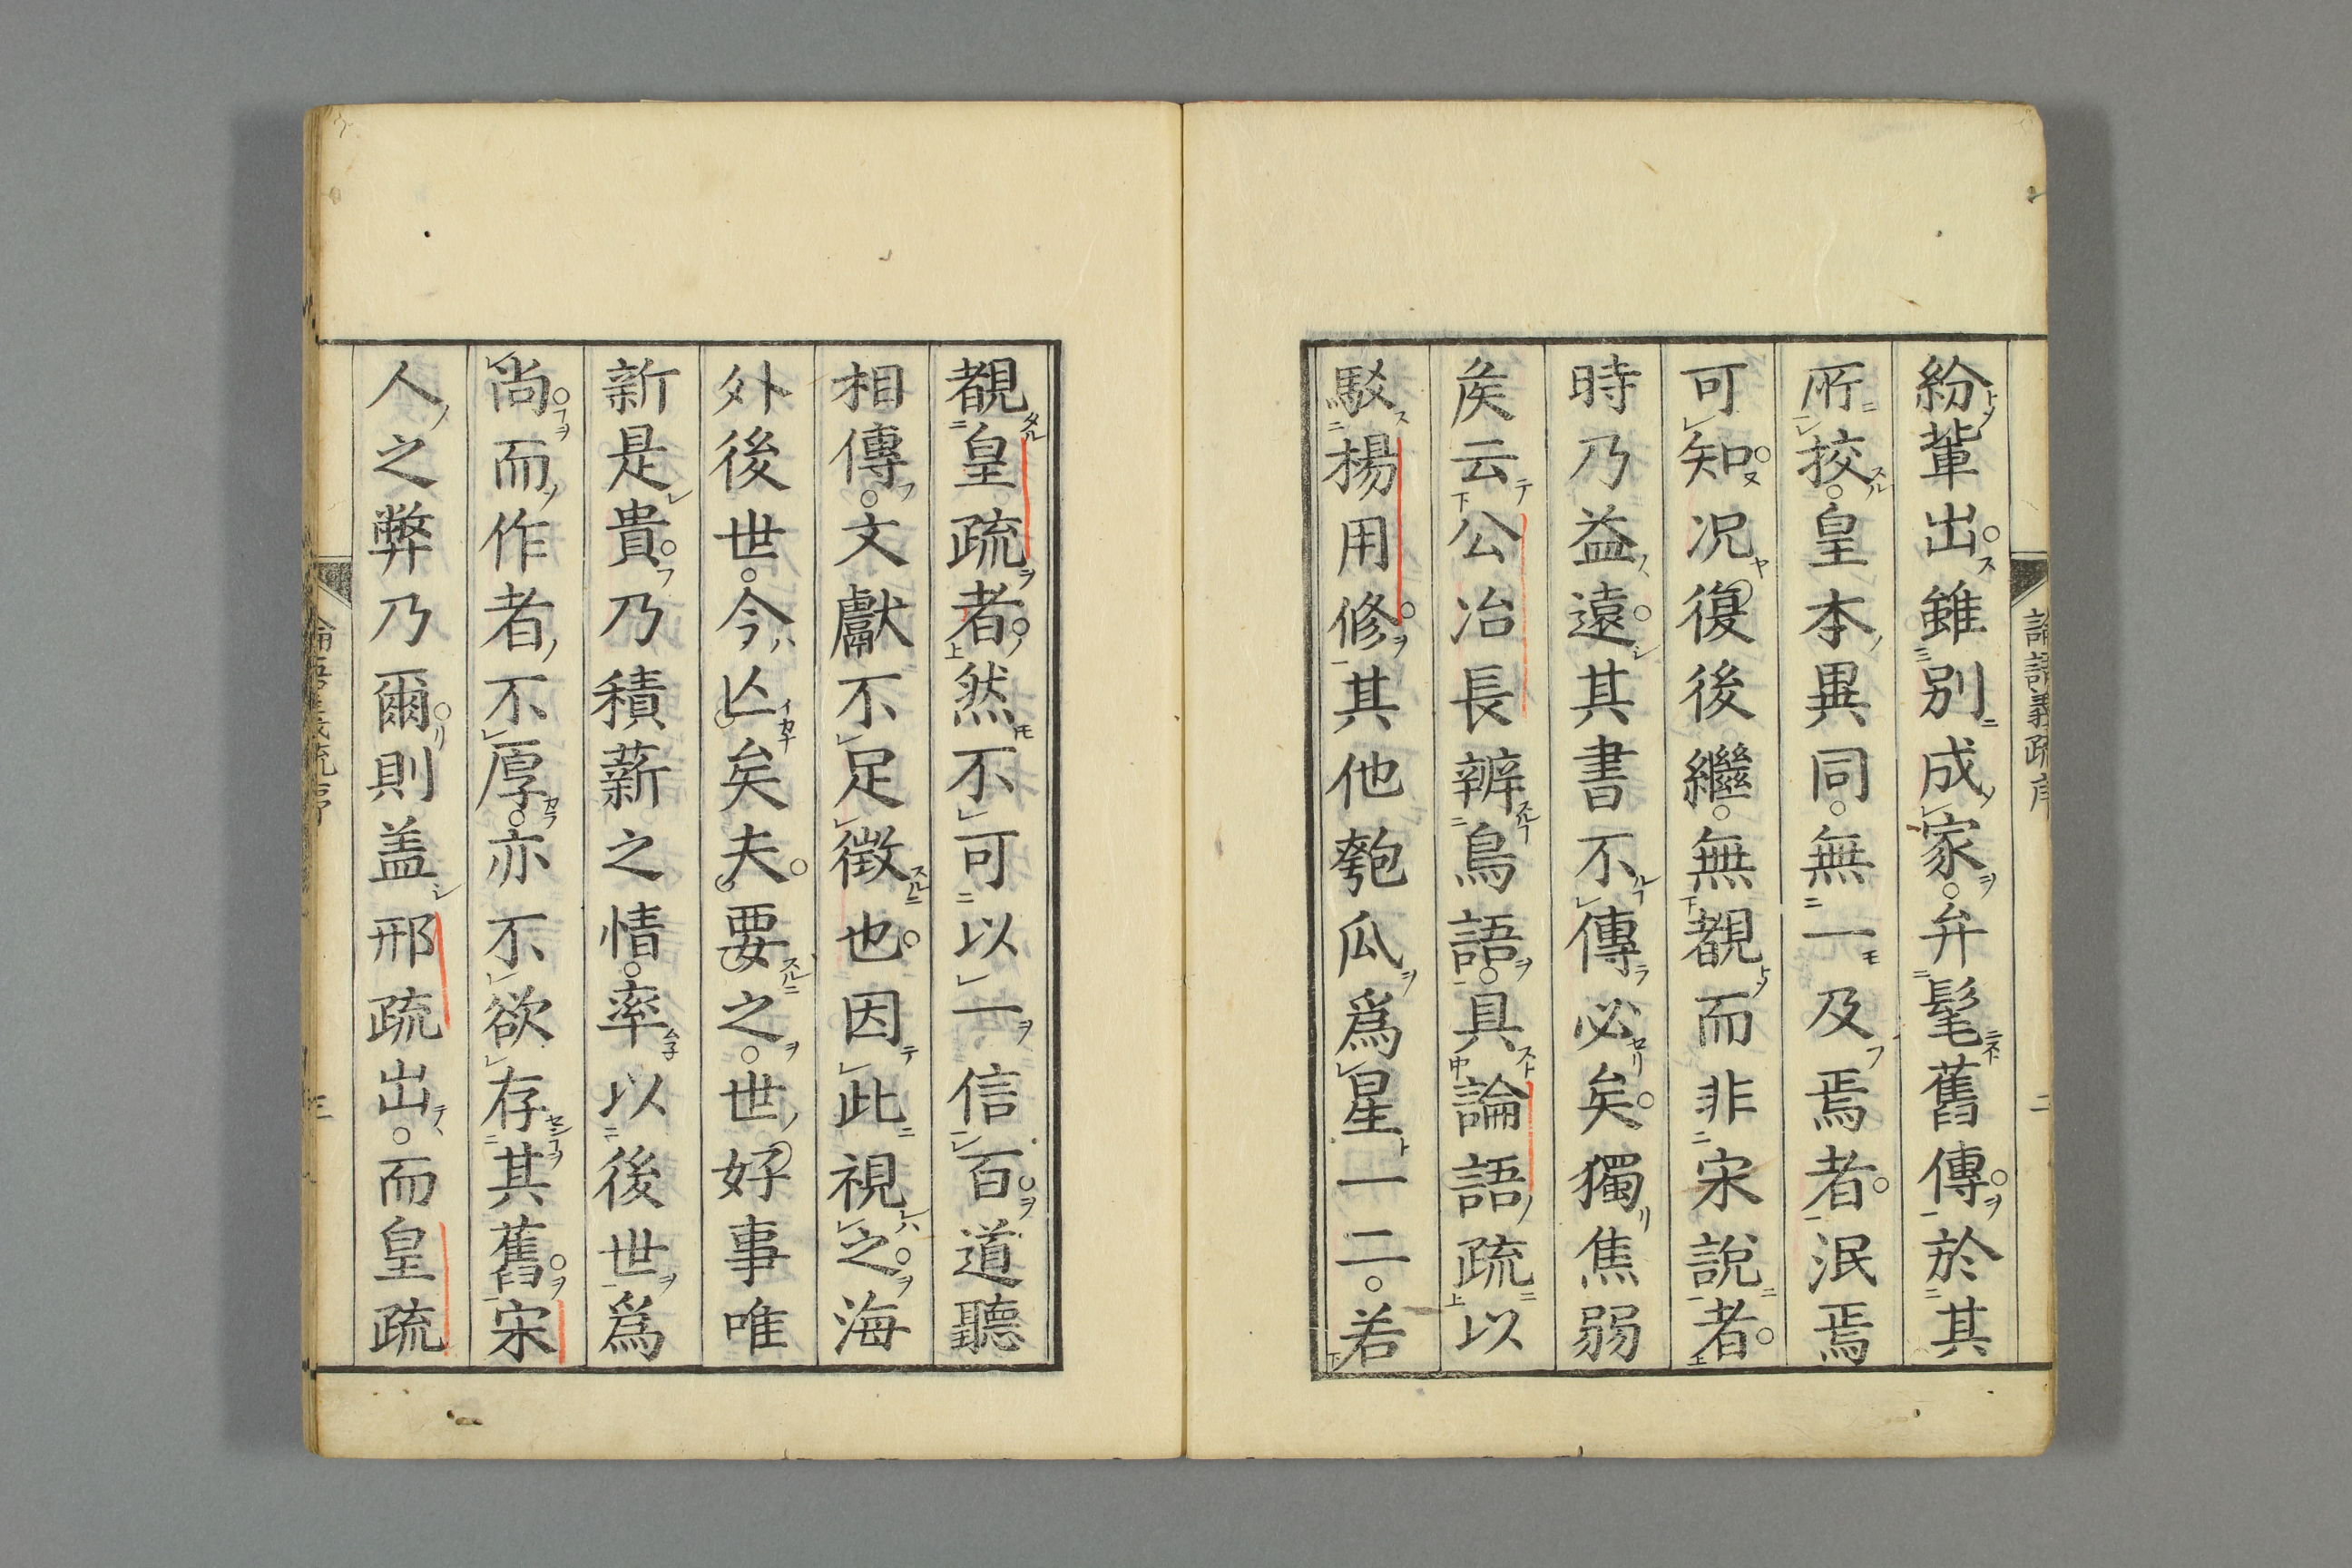 論語義疏序
二
紛輩出雖別成家弁髦舊傳於其
所挍皇本異同無一及焉者泯焉
可知况復後繼無覩而非宋說者
時乃益遠其書不傳必矣獨焦弱
矦云公冶長辨鳥語具論語疏以
駁楊用修其他匏瓜爲星一二若
覩皇疏者然不可以一信百道聽
相傳文獻不足徴也因此視之海
外後世今亾矣夫要之世好事唯
新是貴乃積薪之情率以後世爲
尚而作者不厚亦不欲存其舊宋
人之弊乃爾則盖邢疏出而皇疏